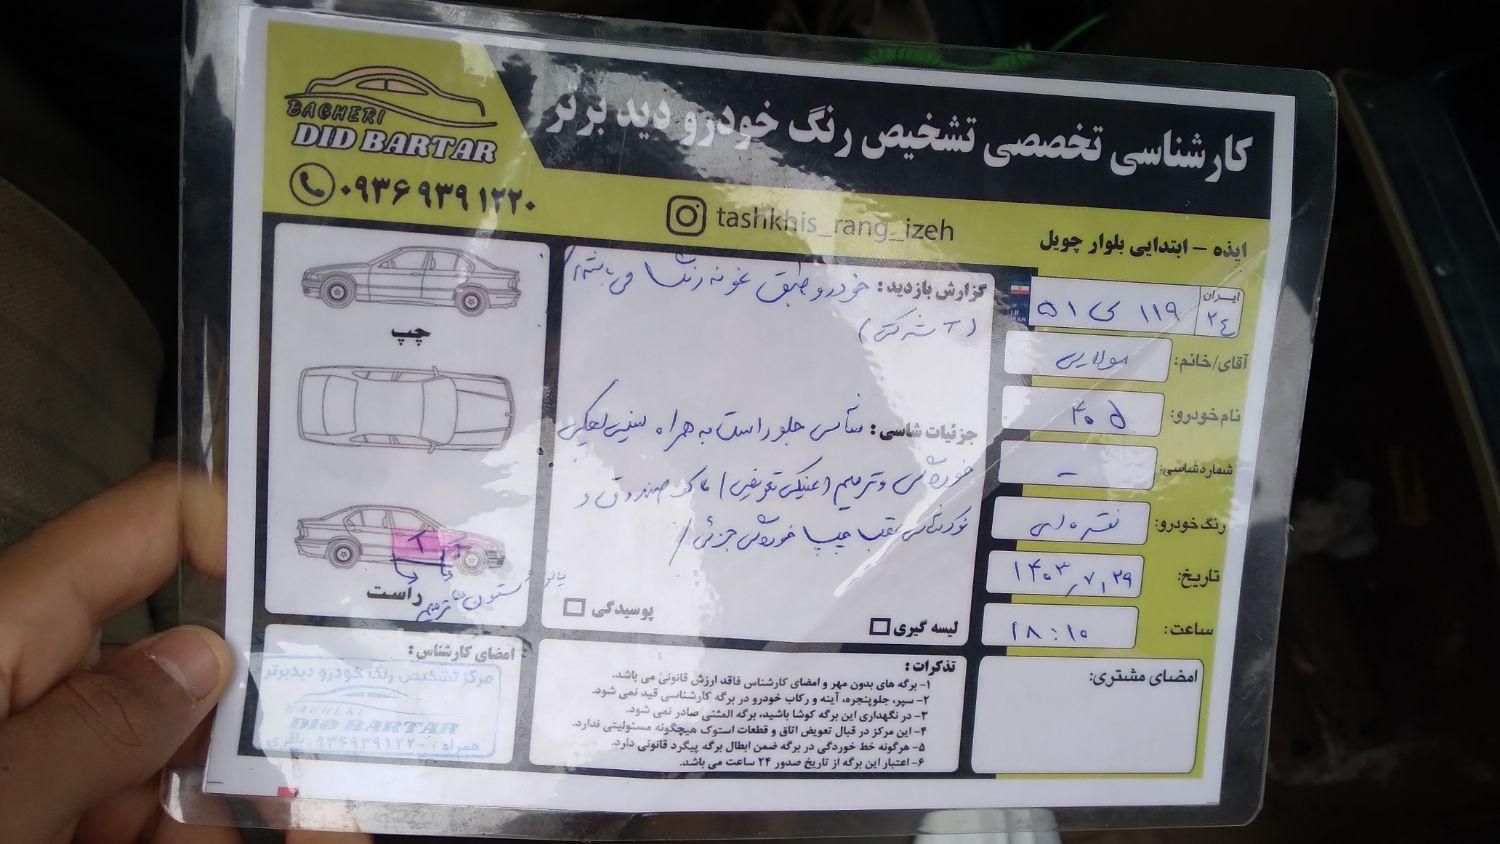 BAGHERI
DID BARTAR
کارشناسی تخصصی تشخیص رنگ خودرو دید برتر
۰۹۳۶ ۹۳۹ ۱۲۲۰
tashkhis_rang_izeh
ایذه - ابتدایی بلوار چویل
ایران
۲۴
۱۱۹ ی ۵۱
I.R.
IRAN
آقای/خانم:
نام خودرو: ۴۰۵
شماره شاسی: -
رنگ خودرو: نقره ای
تاریخ: ۱۴۰۳,۷,۲۹
ساعت: ۱۸:۱۰
امضای مشتری:
گزارش بازدید: خودرو طبق نمونه رنگ می باشد/
جزئیات شاسی: شاسی جلو راست به همراه سینی
خوردگی و ترمیم / کف صندوق و
عقب چپ خوردگی جزئی /
لیسه گیری
پوسیدگی
چپ
راست
ستون ترمیم
تذکرات:
۱- برگه های بدون مهر و امضای کارشناس فاقد ارزش قانونی می باشد.
۲- سپر، جلوپنجره، آینه و رکاب خودرو در برگه کارشناسی قید نمی شود.
۳- در نگهداری این برگه کوشا باشید، برگه المثنی صادر نمی شود.
۴- این مرکز در قبال تعویض اتاق و قطعات استوک هیچگونه مسئولیتی ندارد.
۵- هرگونه خط خوردگی در برگه ضمن ابطال برگه پیگرد قانونی دارد.
۶- اعتبار این برگه از تاریخ صدور ۲۴ ساعت می باشد.
امضای کارشناس:
مرکز تشخیص رنگ خودرو دیدبرتر
BAGHERI
DID BARTAR
همراه: ۰۹۳۶۹۳۹۱۲۲۰ باقری